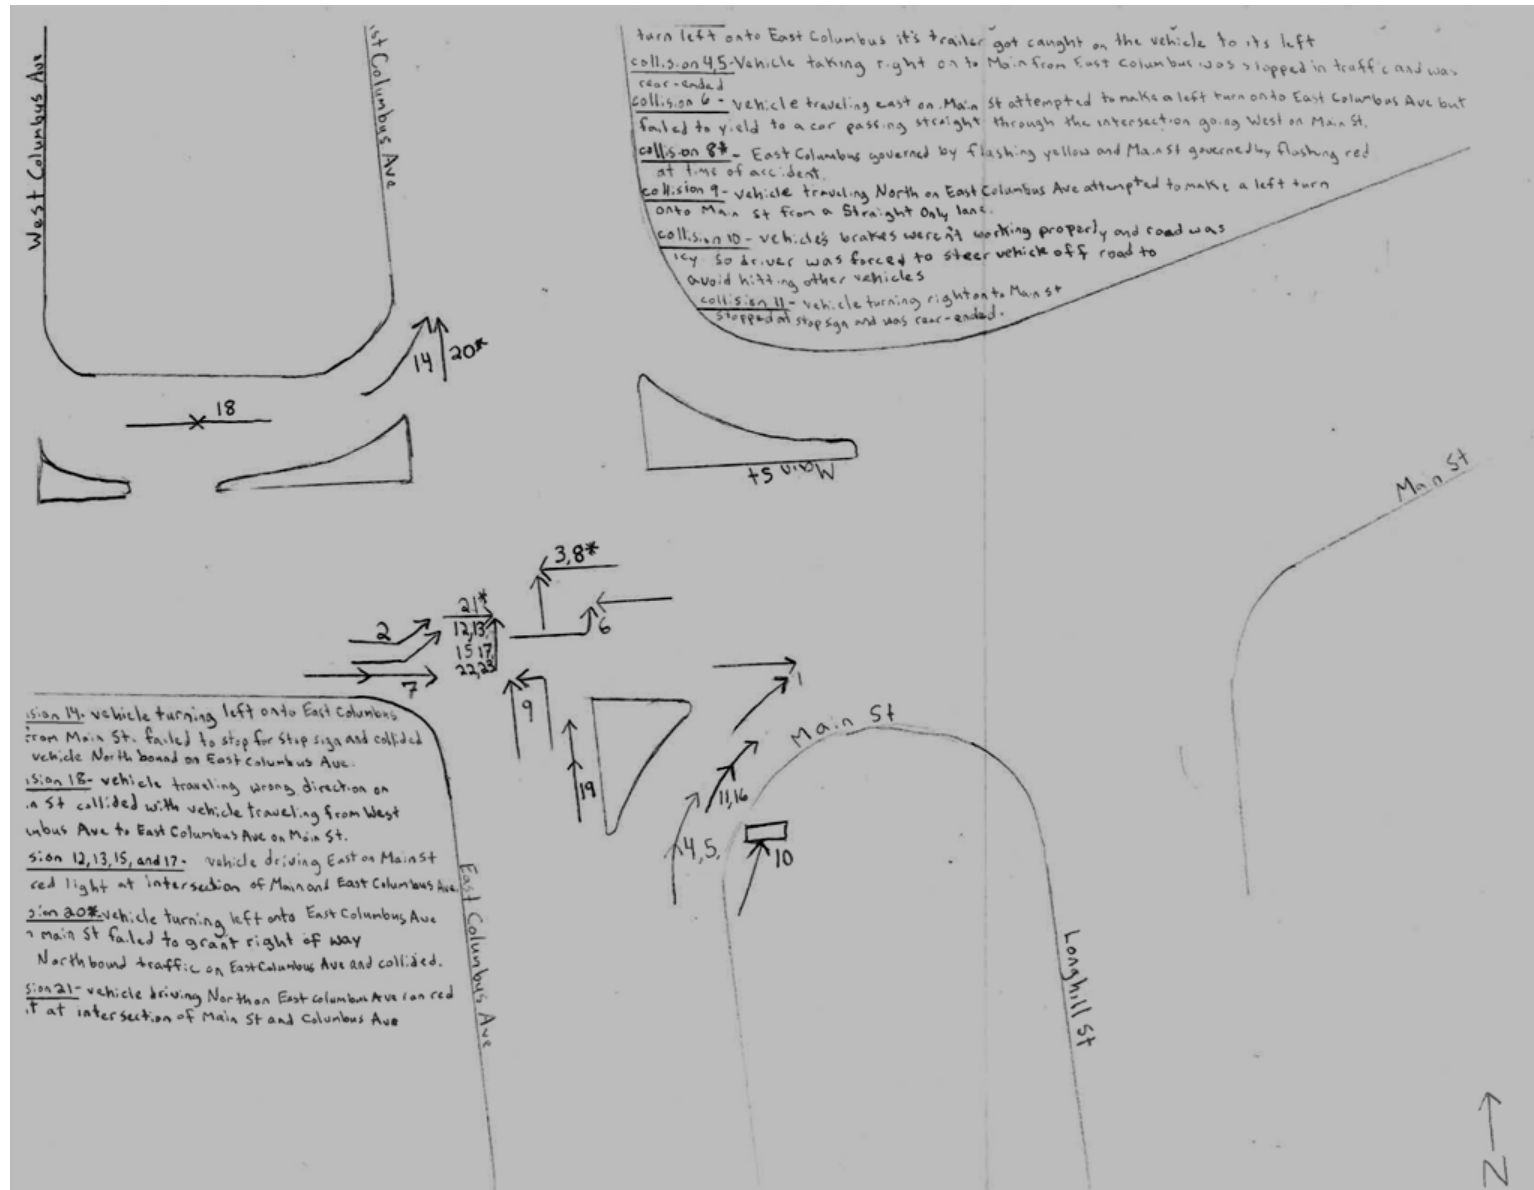 West Columbus Ave
st Columbus Ave
turn left onto East Columbus it's trailer got caught on the vehicle to its left
collision 4,5-Vehicle taking right on to Main from East Columbus was stopped in traffic and was
rear-ended
collision 6 - vehicle traveling east on Main St attempted to make a left turn onto East Columbus Ave but
failed to yield to a car passing straight through the intersection going West on Main St.
collision 8* - East Columbus governed by flashing yellow and Main St governed by flashing red
at time of accident.
collision 9 - vehicle traveling North on East Columbus Ave attempted to make a left turn
onto Main St from a Straight Only lane.
collision 10 - vehicle's brakes weren't working properly and road was
icy so driver was forced to steer vehicle off road to
avoid hitting other vehicles
collision 11 - vehicle turning right on to Main St
stopped at stop sign and was rear-ended.
14
20*
18
Main St
Main St
3,8*
21*
12,13,
15 17,
22,23
2
6
7
9
1
Main St
19
11,16
4,5,
10
ision 14- vehicle turning left onto East Columbus
from Main St. failed to stop for stop sign and collided
vehicle Northbound on East Columbus Ave.
ision 18- vehicle traveling wrong direction on
n St collided with vehicle traveling from West
umbus Ave to East Columbus Ave on Main St.
sion 12,13,15, and 17- vehicle driving East on Main St
red light at intersection of Main and East Columbus Ave.
sion 20* vehicle turning left onto East Columbus Ave
Main St failed to grant right of way
Northbound traffic on East Columbus Ave and collided.
sion 21- vehicle driving North on East Columbus Ave ran red
t at intersection of Main St and Columbus Ave
East Columbus Ave
Longhill St
N